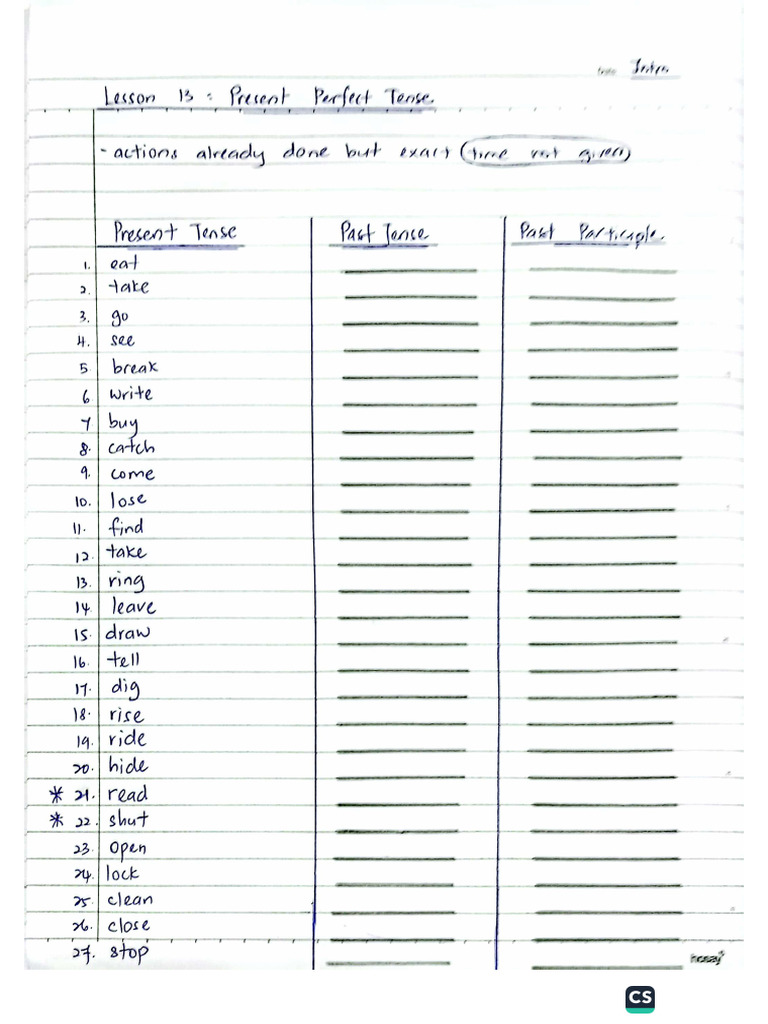 Intro
Lesson 13 : Present Perfect Tense
- actions already done but exact (time not given)
Present Tense Past Tense Past Participle
1. eat
2. take
3. go
4. see
5 break
6 write
7 buy
8. catch
9. come
10. lose
11. find
12. take
13. ring
14 leave
15. draw
16. tell
17. dig
18. rise
19. ride
20. hide
* 21. read
* 22. shut
23. open
24. lock
25. clean
26. close
27. stop
CS